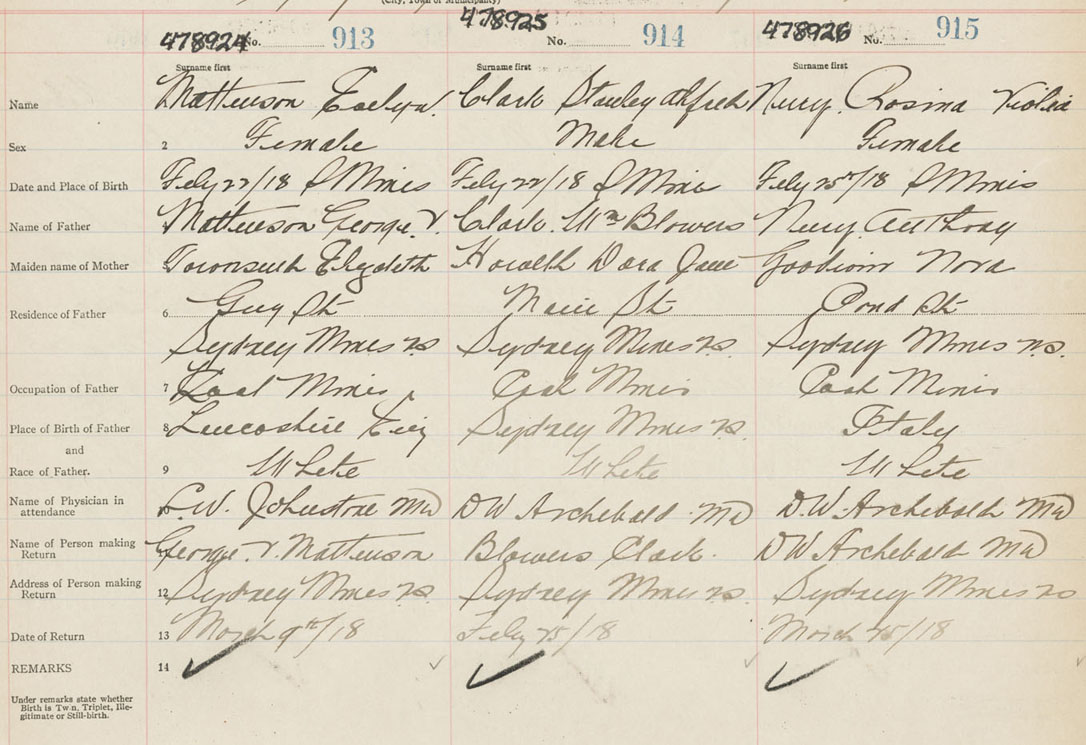 (City, Town or Municipality)
478924 No. 913 478925 No. 914 478926 No. 915
Surname first Surname first Surname first
Name Matthewson Evelyn Clark Stanley Alfred Rosina Violia
Sex 2 Female Male Female
Date and Place of Birth Feby 22/18 S Mines Feby 22/18 S Mines Feby 25th/18 S Mines
Name of Father Matthewson George. V. Clark. Wm Blowers Anthony
Maiden name of Mother Elizabeth Howell Dora Jane Goodwin Nora
Residence of Father 6 Guy St Main St Pond St
Sydney Mines NS Sydney Mines NS. Sydney Mines NS.
Occupation of Father 7 Coal Miner Coal Miner Coal Miner
Place of Birth of Father 8 Lancashire Eng Sydney Mines NS. Italy
and
Race of Father. 9 White White White
Name of Physician in L.W. Johnstone MD DW Archebald MD D.W. Archebald MD
attendance
Name of Person making George. V. Matthewson Blowers Clark. DW Archebald MD
Return
Address of Person making 12 Sydney Mines NS. Sydney Mines NS. Sydney Mines NS
Return
Date of Return 13 March 9th/18 Feby 25/18 March 25/18
REMARKS 14
Under remarks state whether
Birth is Twin, Triplet, Ille-
gitimate or Still-birth.